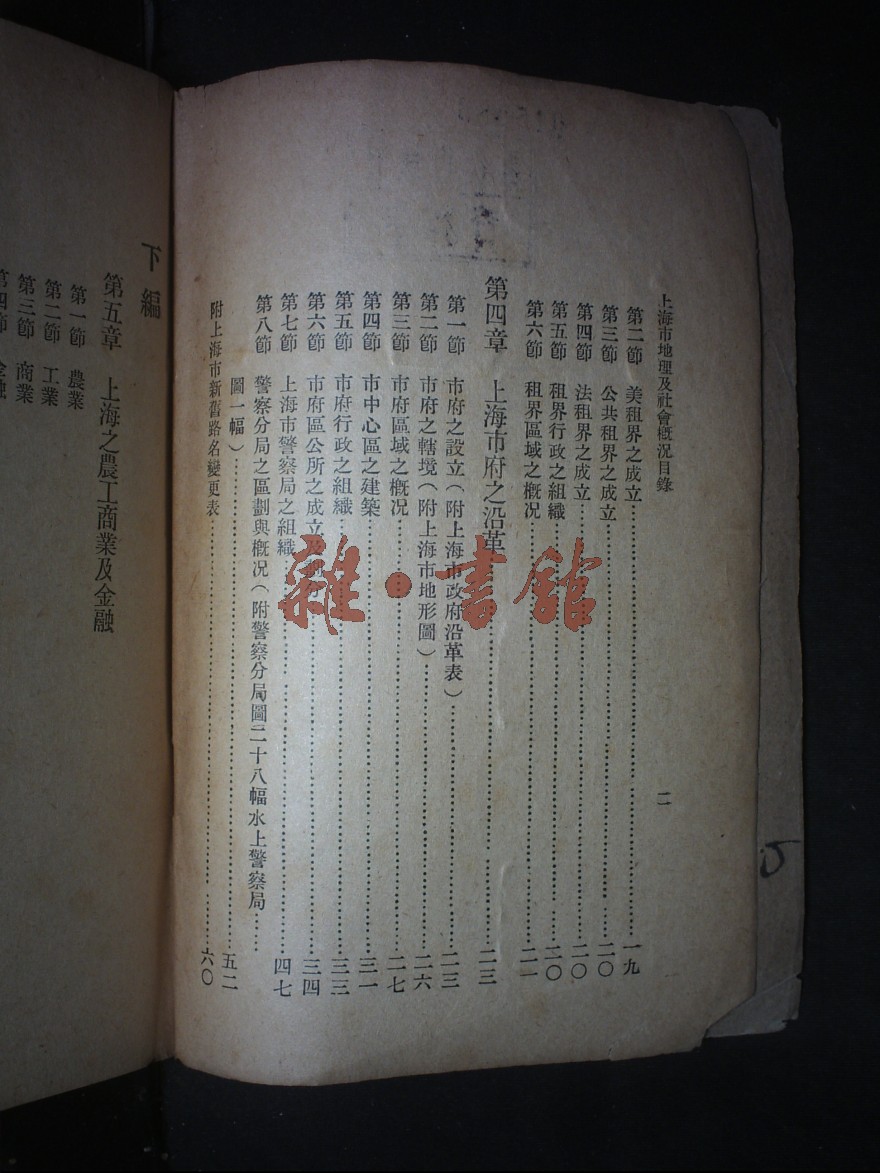 上海市地理及社會概況目錄
二
第二節 美租界之成立……一九
第三節 公共租界之成立……二〇
第四節 法租界之成立……二〇
第五節 租界行政之組織……二〇
第六節 租界區域之概況……二一
第四章 上海市府之沿革……二三
第一節 市府之設立(附上海市政府沿革表)……二三
第二節 市府之轄境(附上海市地形圖)……二六
第三節 市府區域之概况……二七
第四節 市中心區之建築……三一
第五節 市府行政之組織……三三
第六節 市府區公所之成立及……三四
第七節 上海市警察局之組織……四七
第八節 警察分局之區劃與概况(附警察分局圖二十八幅水上警察局……
圖一幅)……五二
附上海市新舊路名變更表……六〇
下編
第五章 上海之農工商業及金融
第一節 農業
第二節 工業
第三節 商業
第四節 金融
雜·書館